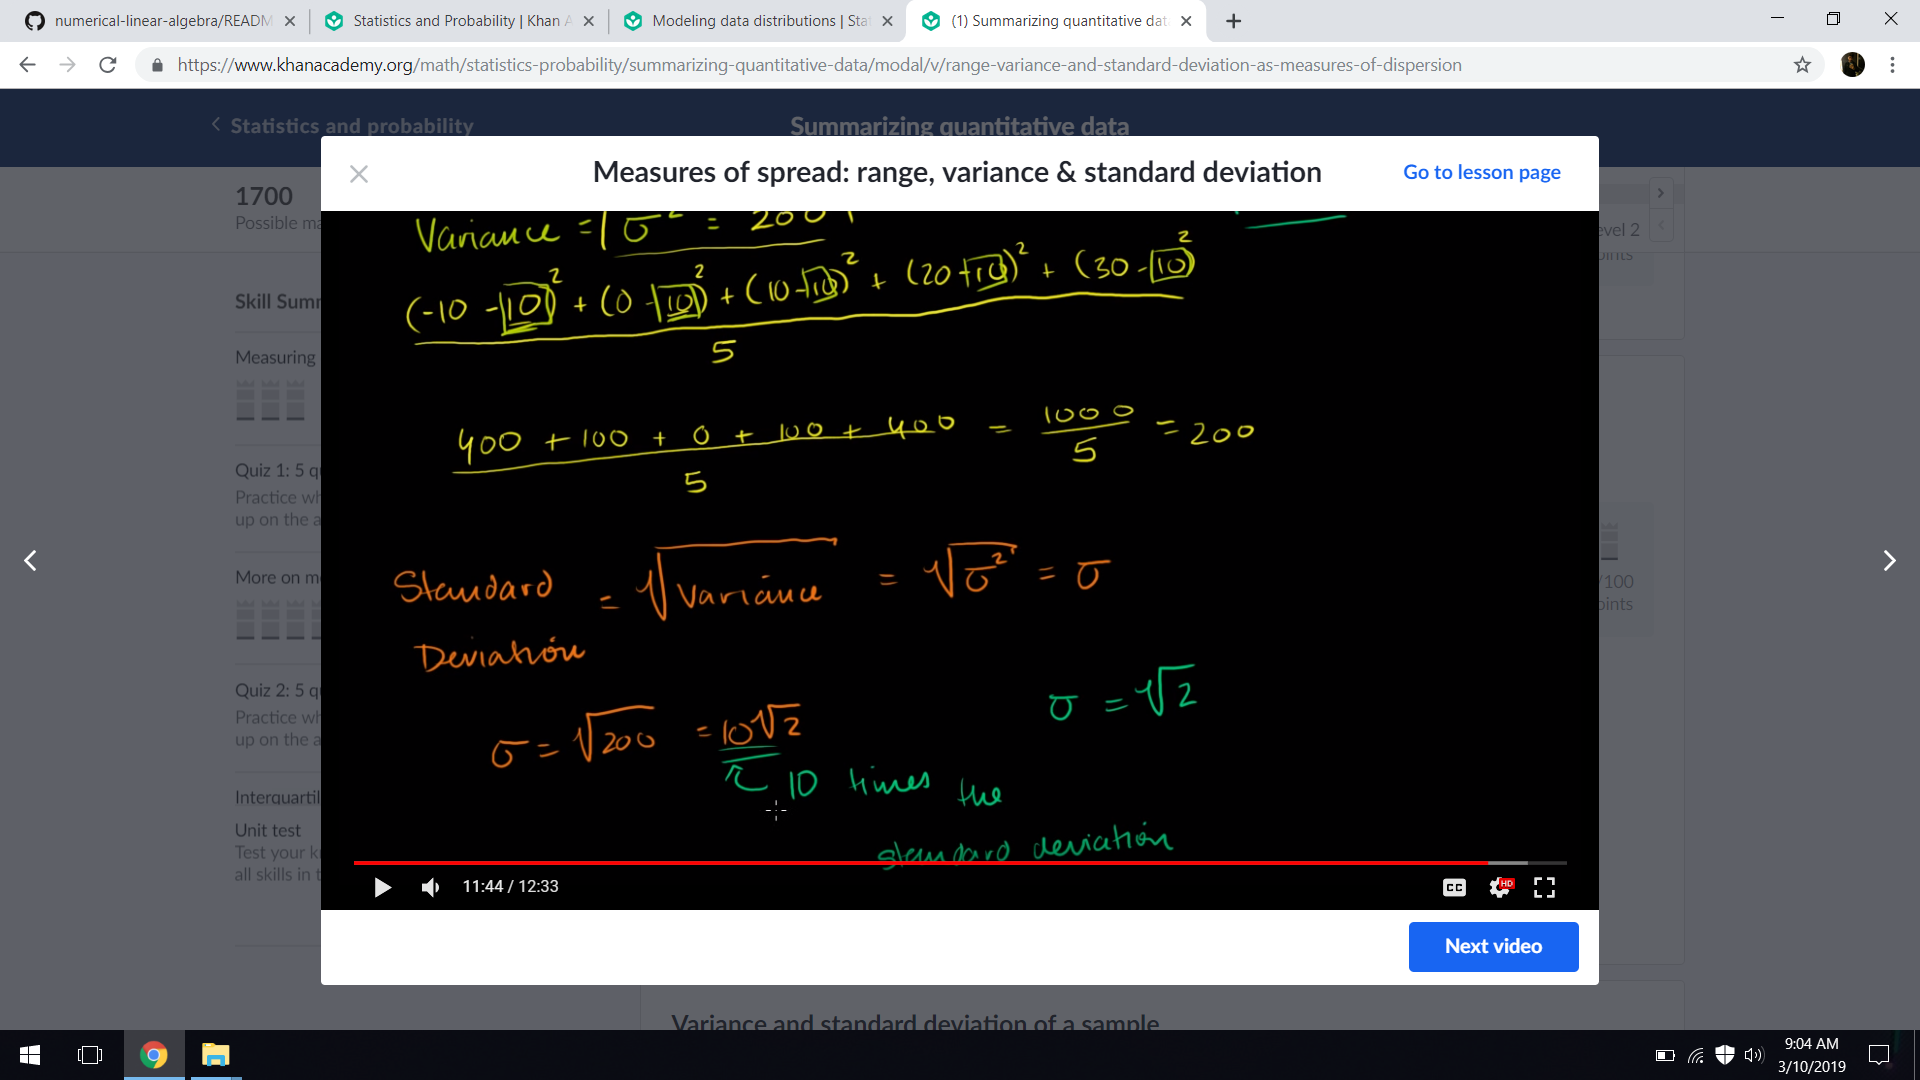 numerical-linear-algebra/READM
Statistics and Probability | Khan A
Modeling data distributions | Sta
(1) Summarizing quantitative dat
https://www.khanacademy.org/math/statistics-probability/summarizing-quantitative-data/modal/v/range-variance-and-standard-deviation-as-measures-of-dispersion
Statistics and probability
Summarizing quantitative data
1700
Possible ma
Skill Summ
Measuring
Quiz 1: 5 q
Practice wh
up on the a
More on m
Quiz 2: 5 q
Practice wh
up on the a
Interquartil
Unit test
Test your k
all skills in t
Measures of spread: range, variance & standard deviation
Go to lesson page
Variance = σ² = 200
(-10 - 10)² + (0 - 10)² + (10 - 10)² + (20 - 10)² + (30 - 10)²
5
400 + 100 + 0 + 100 + 400 = 1000 = 200
5 5
Standard = √variance = √σ² = σ
Deviation
σ = √200 = 10√2
σ = √2
10 times the
standard deviation
11:44 / 12:33
CC
HD
Next video
evel 2
oints
/100
oints
Variance and standard deviation of a sample
9:04 AM
3/10/2019